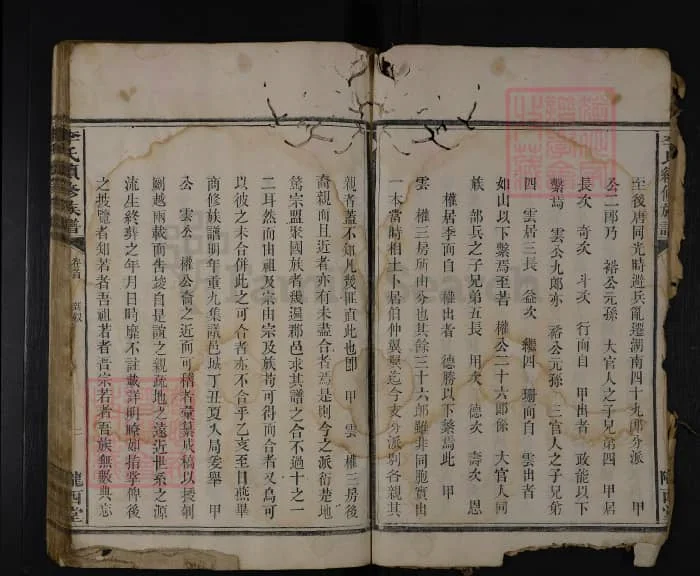 至後唐同光時避兵亂遷湖南四十九郎分派 甲
公二郎乃 裕公元孫 大官人之子兄弟四 甲居
長次 奇次 斗次 行面自 甲出者 政能以下
繫焉 雲公九郎亦 裕公元孫 三官人之子兄弟
四 雲居三長 益次 四 珊面自 雲出者
如山以下繫焉至若 權公二十六郎係 大官人同
族 部兵之子兄弟五長 用次 德次 壽次 恩
權居季面自 權出者 德勝以下繫焉此 甲
雲 權三房所由分也其餘三十六郎雖非同胞實由
一本當時相土卜居伯仲翼翼迄今支分派別各親其
親者蓋不知凡幾匪直此也即 甲 雲 權三房後
裔親而且近者亦有未盡合者焉是則今之派衍楚地
駕宗盟聚國族者幾遍郡邑求其譜之合不過十之一
二耳然而由祖及宗由宗及族苟可得而合者又烏可
以彼之未合併此之可合者亦不合乎乙亥至日燕畢
商修族譜明年重九集議邑城丁丑夏入局委舉 甲
公 雲公 權公裔之近而可稽者彙纂成稿以授剞
劂越兩載而告竣自是誼之親疏地之遠近世系之源
流生終葬之年月日時靡不註載詳明瞭如指掌俾後
之披覽者知若者吾祖若者吾宗若者吾族無數典忘
李氏續修族譜
卷首
隴西堂